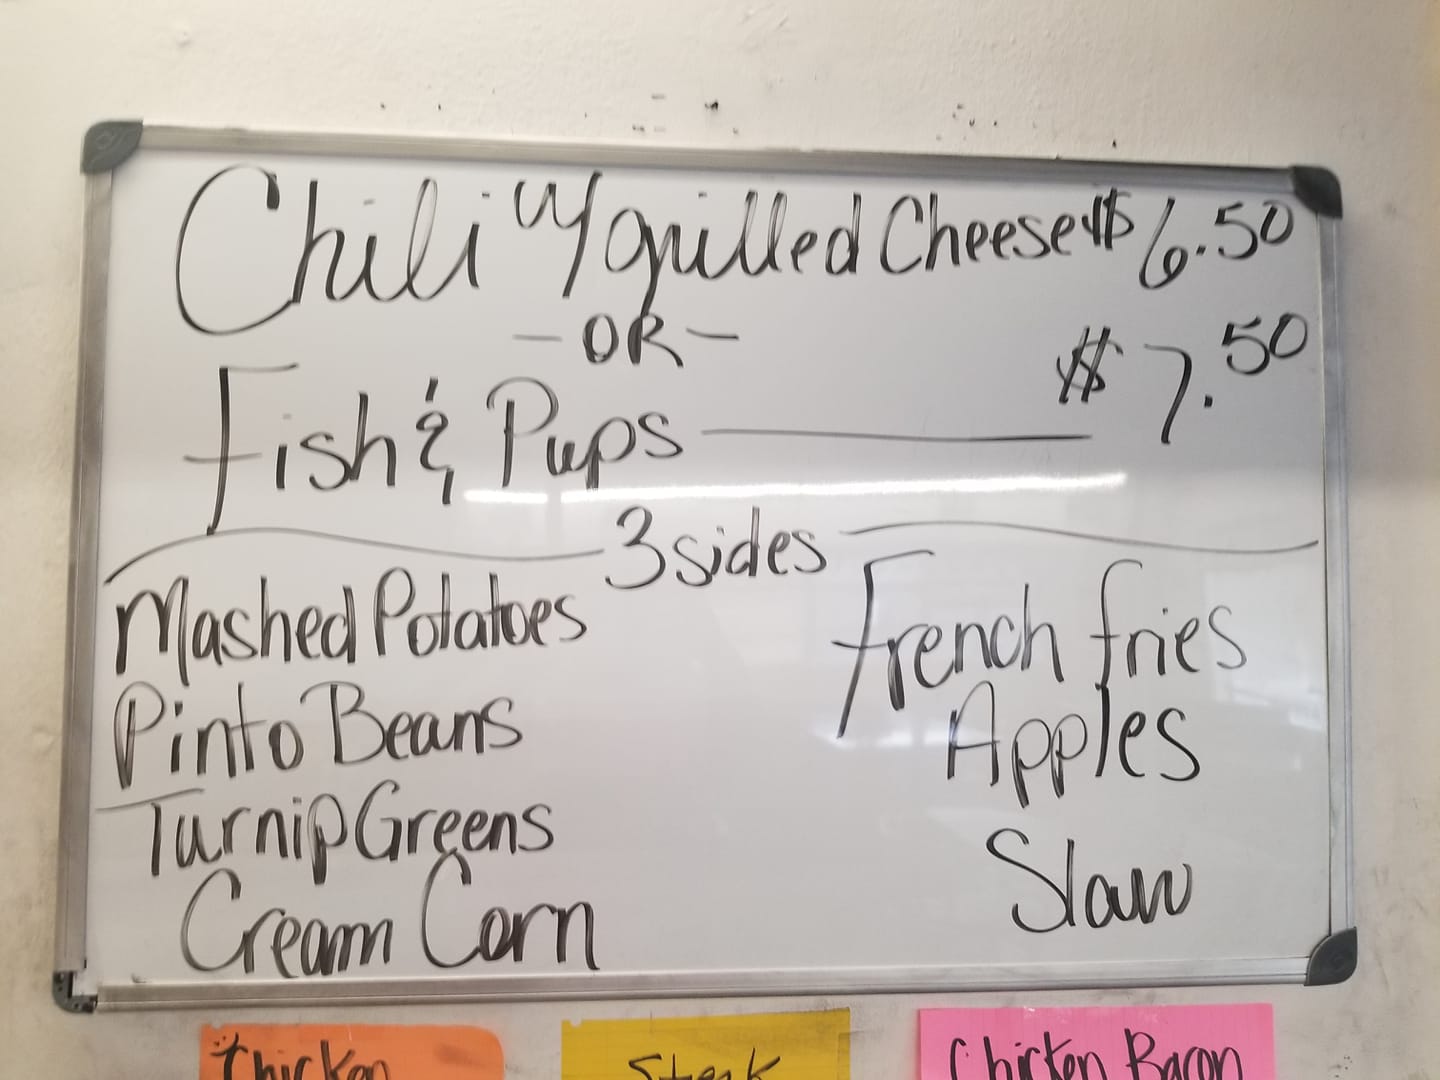 Chili w/ grilled Cheese $6.50
- OR -
Fish & Pups $7.50
3 sides
Mashed Potatoes
Pinto Beans
Turnip Greens
Cream Corn
French fries
Apples
Slaw
Chicken
Steak
Chicken Bacon